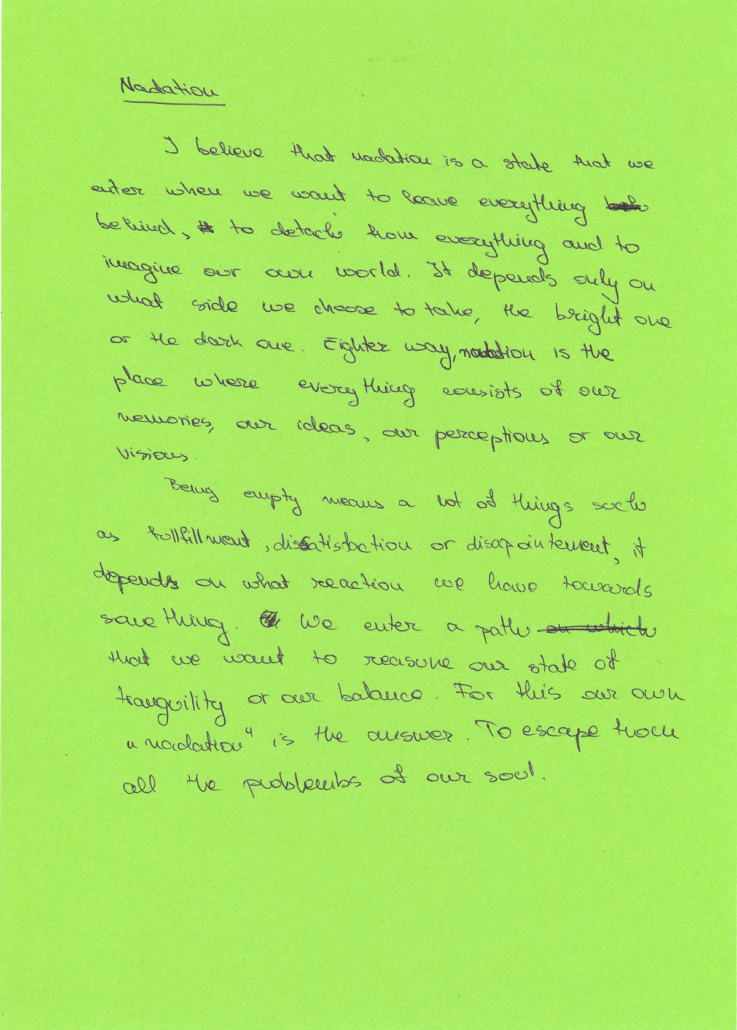 Nadation
I believe that nadation is a state that we
enter when we want to leave everything
behind, to detach from everything and to
imagine our own world. It depends only on
what side we choose to take, the bright one
or the dark one. Eighter way, nadation is the
place where everything consists of our
memories, our ideas, our perceptions or our
visions.
Being empty means a lot of things such
as fullfillment, dissatisfaction or disapointement, it
depends on what reaction we have towards
something. We enter a path on which
that we want to reasure our state of
tranquility or our balance. For this our own
"nadation" is the answer. To escape from
all the problembs of our soul.